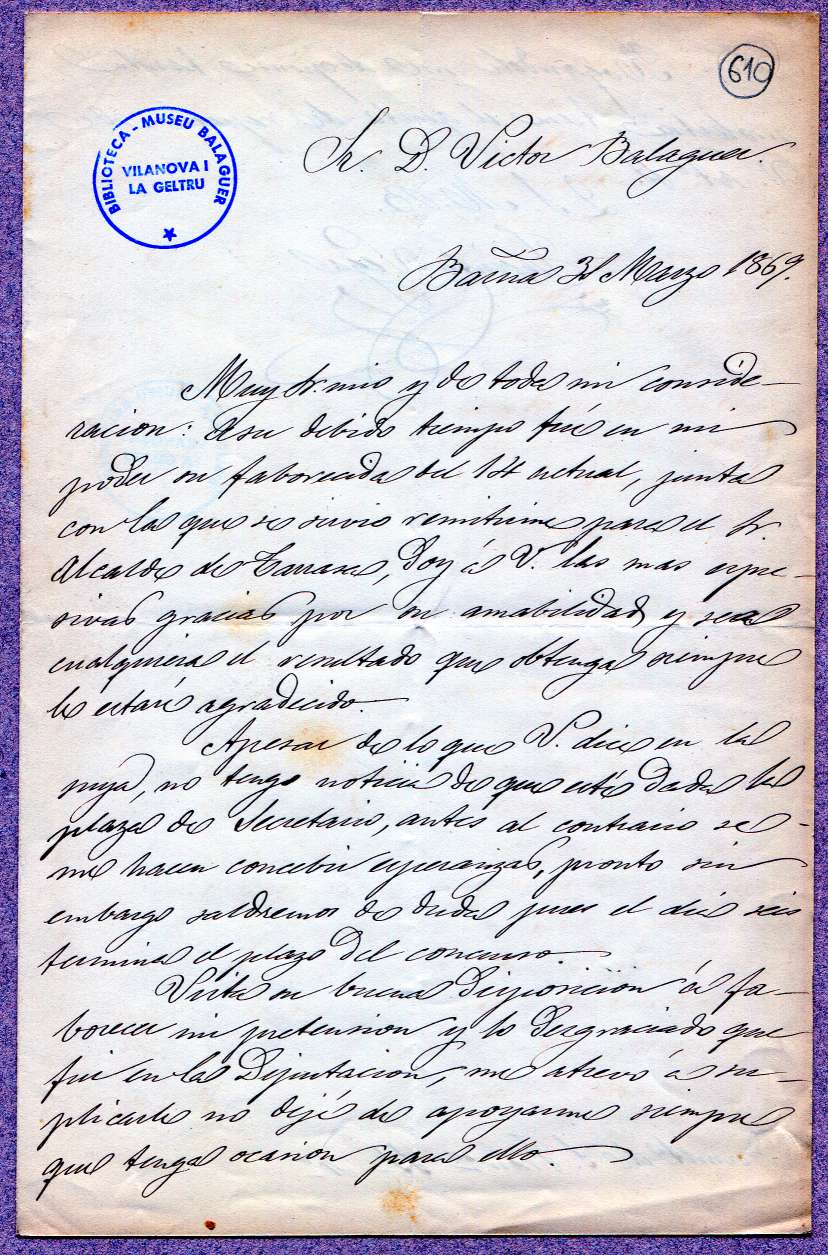 610
BIBLIOTECA - MUSEU BALAGUER
VILANOVA I
LA GELTRU
Sr. D. Victor Balaguer.
Barna 31 Marzo 1869.
Muy Sr. mio y de toda mi conside-
racion: a su debido tiempo fué en mi
poder su faborecida del 14 actual, junta
con la que se sirvio remitirme para el Sr.
Alcalde de Tarrasa, doy á V. las mas espre-
sivas gracias por su amabilidad y sea
cualquiera el resultado que obtenga siempre
le estaré agradecido.
Apesar de lo que V. dice en la
suya, no tengo noticia de que esté dada la
plaza de Secretario, antes al contrario se
me hacen concebir esperanzas, pronto sin
embargo saldremos de duda pues el dia seis
termina el plazo del concurso.
Vista su buena disposicion á fa-
borecer mi pretension y lo desgraciado que
fui en la Diputacion, me atrevo á su-
plicarle no dejé de apoyarme siempre
que tenga ocasion para ello.